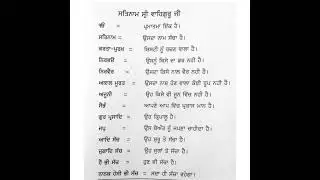 ਸਤਿਨਾਮ ਸ੍ਰੀ ਵਾਹਿਗੁਰੂ ਜੀ
ੴ = ਪ੍ਰਮਾਤਮਾ ਇੱਕ ਹੈ।
ਸਤਿਨਾਮ = ਉਸਦਾ ਨਾਮ ਸੱਚਾ ਹੈ।
ਕਰਤਾ-ਪੁਰਖ = ਸ੍ਰਿਸ਼ਟੀ ਨੂੰ ਰਚਨ ਵਾਲਾ ਹੈ।
ਨਿਰਭਉ = ਉਸਨੂੰ ਕਿਸੇ ਦਾ ਡਰ ਨਹੀਂ ਹੈ।
ਨਿਰਵੈਰ = ਉਸਦਾ ਕਿਸੇ ਨਾਲ ਵੈਰ ਨਹੀਂ ਹੈ।
ਅਕਾਲ ਮੂਰਤ = ਉਸਦਾ ਨਾਸ਼ ਹੋਣ ਵਾਲਾ ਕੋਈ ਰੂਪ ਨਹੀਂ।
ਅਜੂਨੀ = ਉਹ ਕਿਸੇ ਵੀ ਜੂਨ ਵਿੱਚ ਨਹੀਂ ਹੈ।
ਸੈਭੰ = ਆਪਣੇ ਆਪ ਵਿੱਚ ਪ੍ਰਕਾਸ਼ ਮਾਨ ਹੈ।
ਗੁਰ ਪ੍ਰਸਾਦਿ = ਉਹ ਕ੍ਰਿਪਾਲੂ ਹੈ।
ਜਪੁ = ਉਸ ਬੇਅੰਤ ਨੂੰ ਜਪਣਾ ਚਾਹੀਦਾ ਹੈ।
ਆਦਿ ਸੱਚ = ਉਹ ਸ਼ੁਰੂ ਤੋਂ ਸੱਚਾ ਹੈ।
ਜੁਗਾਦਿ ਸੱਚ = ਉਹ ਜੁਗਾਂ ਤੋਂ ਸੱਚਾ ਹੈ।
ਹੈ ਭੀ ਸੱਚ = ਹੁਣ ਭੀ ਸੱਚਾ ਹੈ।
ਨਾਨਕ ਹੋਸੀ ਭੀ ਸੱਚ = ਸਦਾ ਹੀ ਸੱਚਾ ਰਹੇਗਾ।